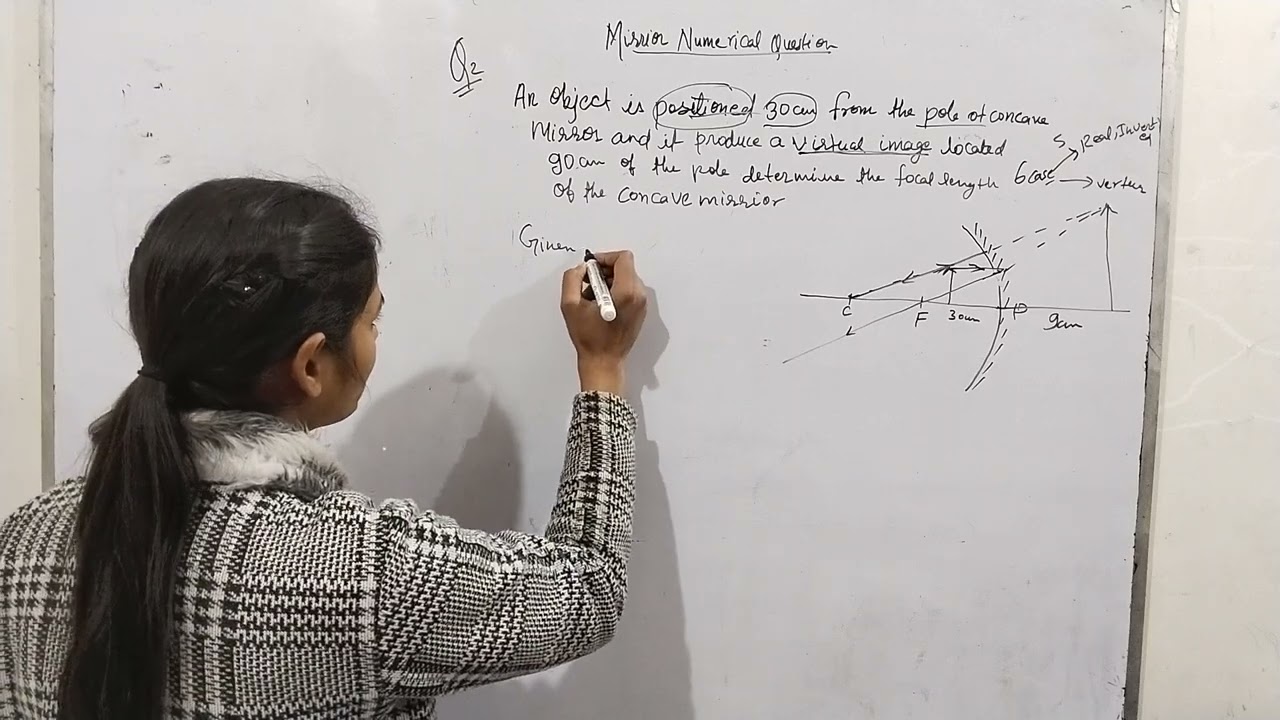 Mirror Numerical Question
Q2
An object is positioned 30cm from the pole of concave
mirror and it produce a virtual image located
90cm of the pole determine the focal length
of the concave mirror
6 case
5 Real, Inverted
Given
C
F
30cm
P
9cm